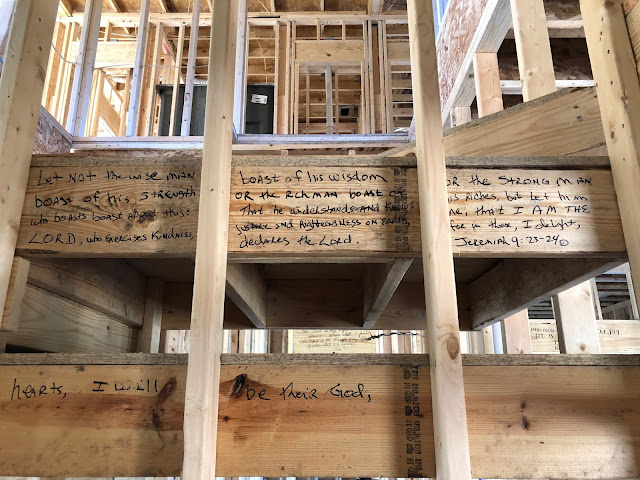 Let Not the wise mian boast of his wisdom OR the STRONG mAN
BOAST of his STRENGTH OR the Rich man BOAST OF his Riches, but let him
who boasts boast about this: That he understands AND KNOWS me, that I AM THE
LORD, who exercises Kindness, justice and Righteousness on earth, for in these, I delight,
declares the Lord. Jeremiah 9:23-24
hearts, I will be their God,